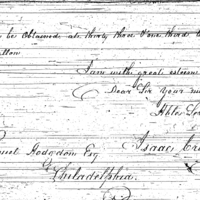 be obtained at thirty three & one third
I am with great esteem
Dear Sir Your m
Hble Ser
Isaac Cr
Hodgdon Esq
Philadelphia.